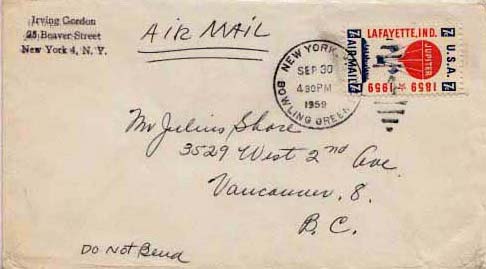 Irving Gordon
25 Beaver Street
New York 4, N. Y.
AIR MAIL
NEW YORK
SEP 30
4 30 PM
1959
BOWLING GREEN
LAFAYETTE, IND.
JUPITER
7¢ U.S.A. 7¢
7¢ AIR MAIL 7¢
1859 ★ 1959
Mr Julius Shore
3529 West 2nd Ave
Vancouver, 8.
B. C.
Do Not Bend